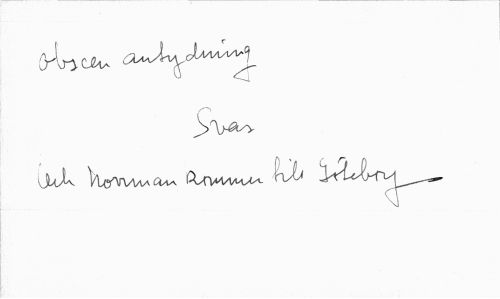 obscen antydning
Svar
Och Norrman kommer till Göteborg